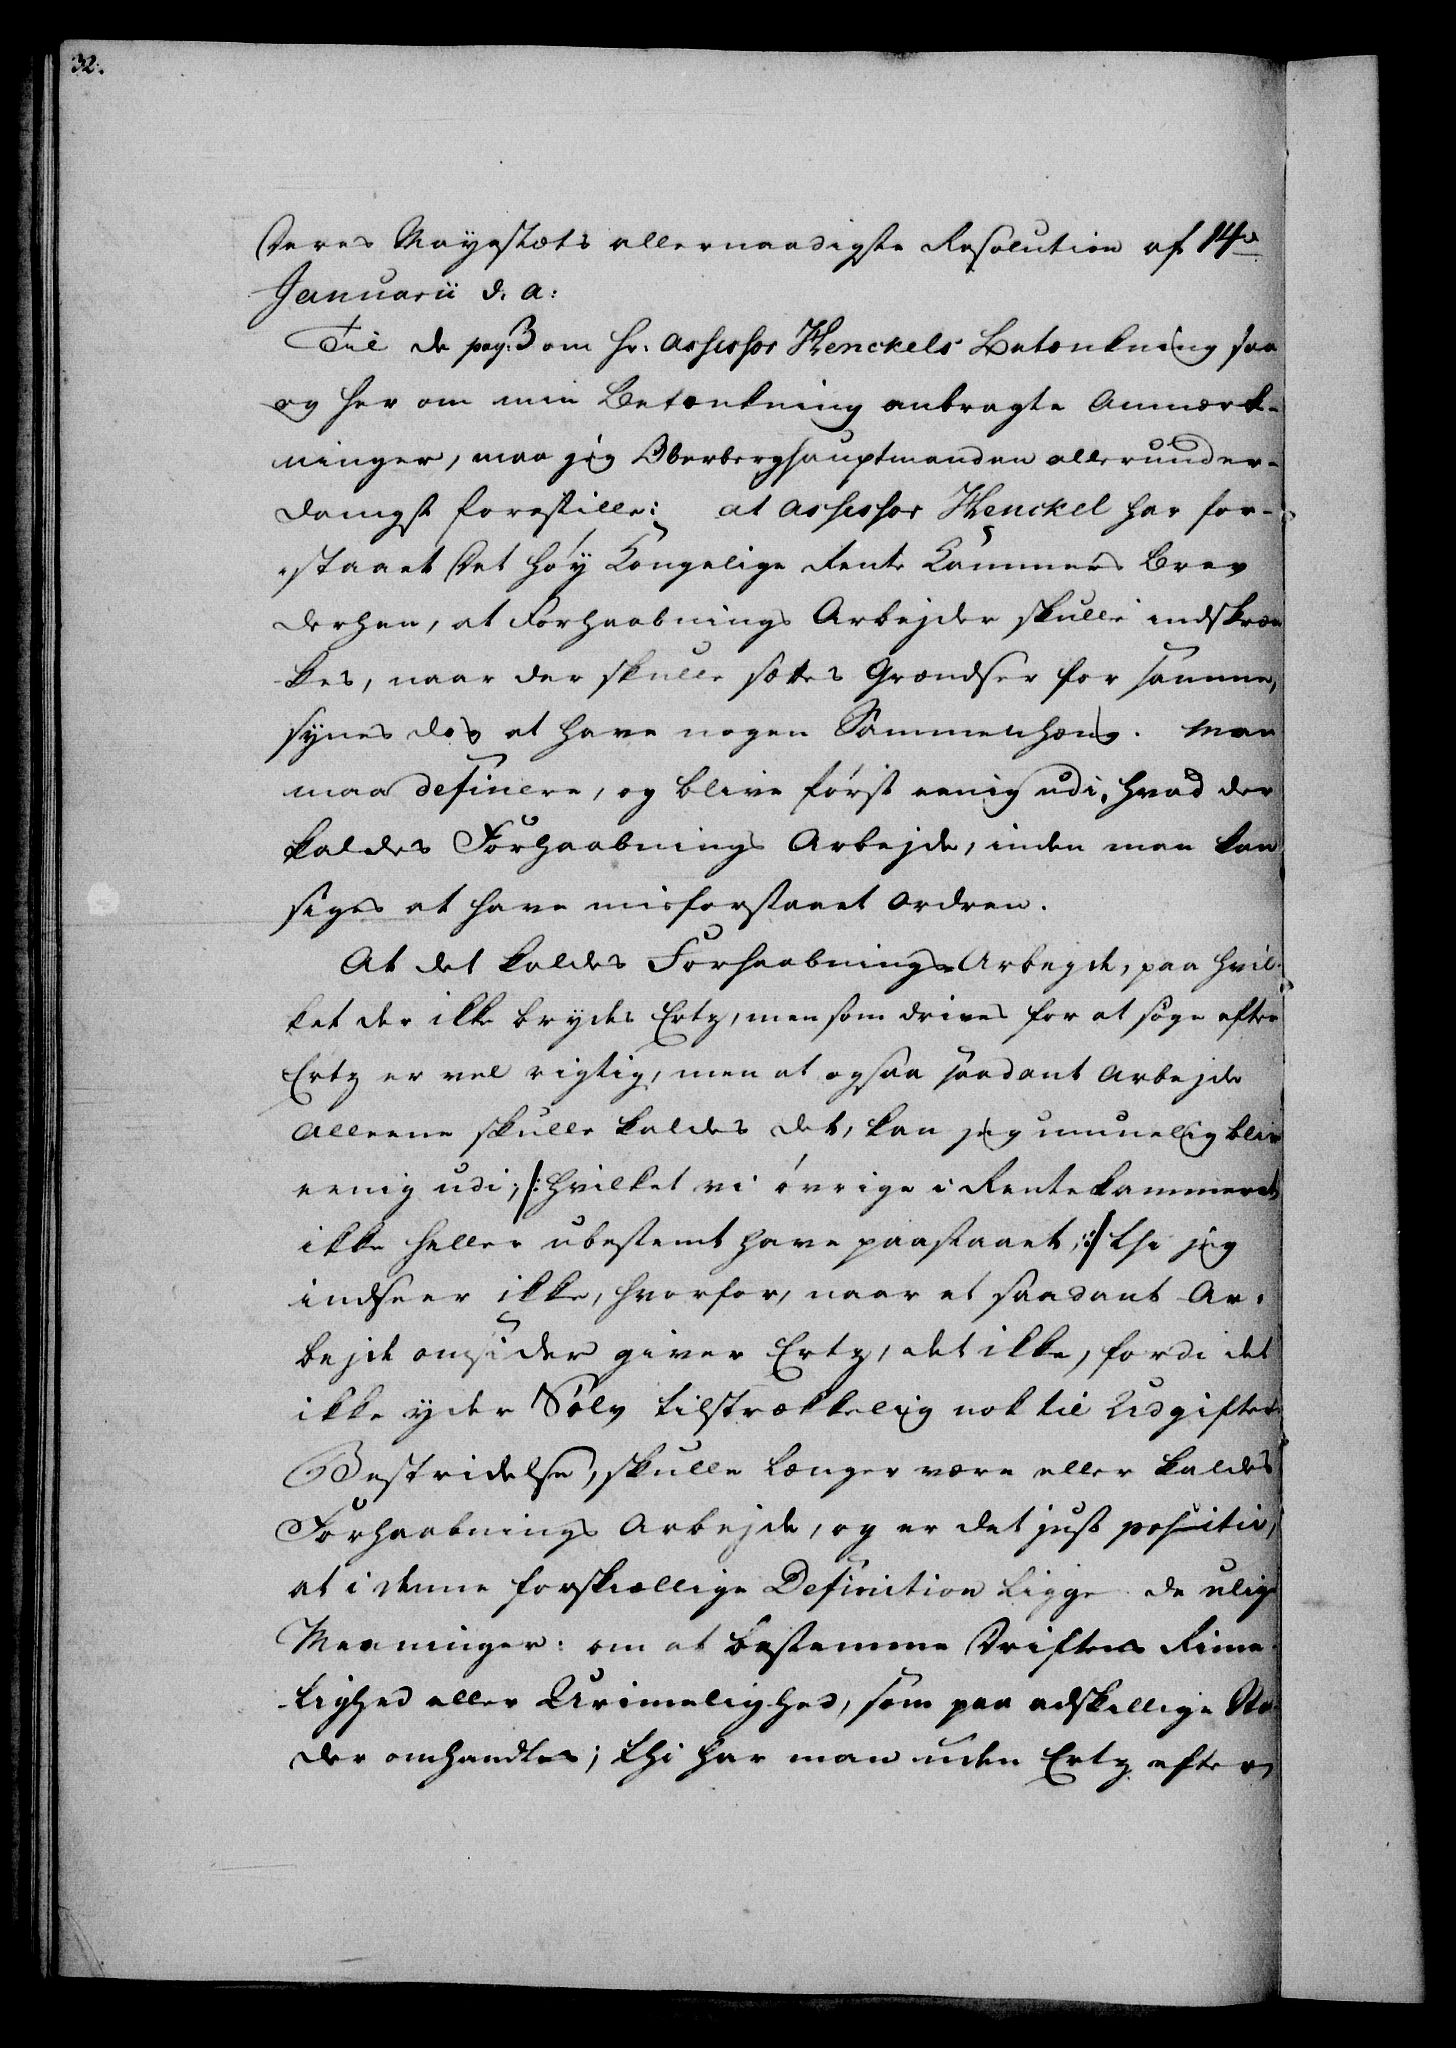 32.
Deres Mayestæts allernaadigste Resolution af 14de
Januarii d. a:
Til de pag. 3 om Hr. Assessor Henckels Betænkning saa
og her om min Betænkning anbragte Anmærk-
ninger, maa jeg Oberberghauptmanden allerunder-
danigst forestille: at Assessor Henckel har for-
staaet Det Høy Kongelige Rente Kammers Brev
derhen, at Forhaabnings Arbejder skulle indskræn
kes, naar der skulle sættes Grændser for samme,
synes dog at have nogen Sammenhæng. Man
maa definere, og blive først eenig udi, hvad der
kaldes Forhaabnings Arbejde, inden man kan
siges at have misforstaaet Ordren.
At det kaldes Forhaabnings-Arbejde, paa hvil-
ket der ikke brydes Ertz, men som drives for at søge efter
Ertz er vel rigtig, men at ogsaa saadant Arbejde
alleene skulle kaldes det, kan jeg umuelig blive
eenig udi; /: hvilket vi øvrige i Rentekammeret
ikke heller ubestemt have paastaaet, :/ thi jeg
indseer ikke, hvorfor, naar et saadant Ar-
bejde omsider giver Ertz, det ikke, fordi det
ikke yder Sølv tilstrækkelig nok til Udgifters
Bestridelse, skulle længer være eller kaldes
Forhaabnings Arbejde, og er det just positiv,
at i denne forskiællige Definition ligge de ulige
Meeninger: om at bestemme Driftens Rime-
lighed eller Urimelighed, som paa adskillige Ste
der omhandles; thi har man uden Ertz efter